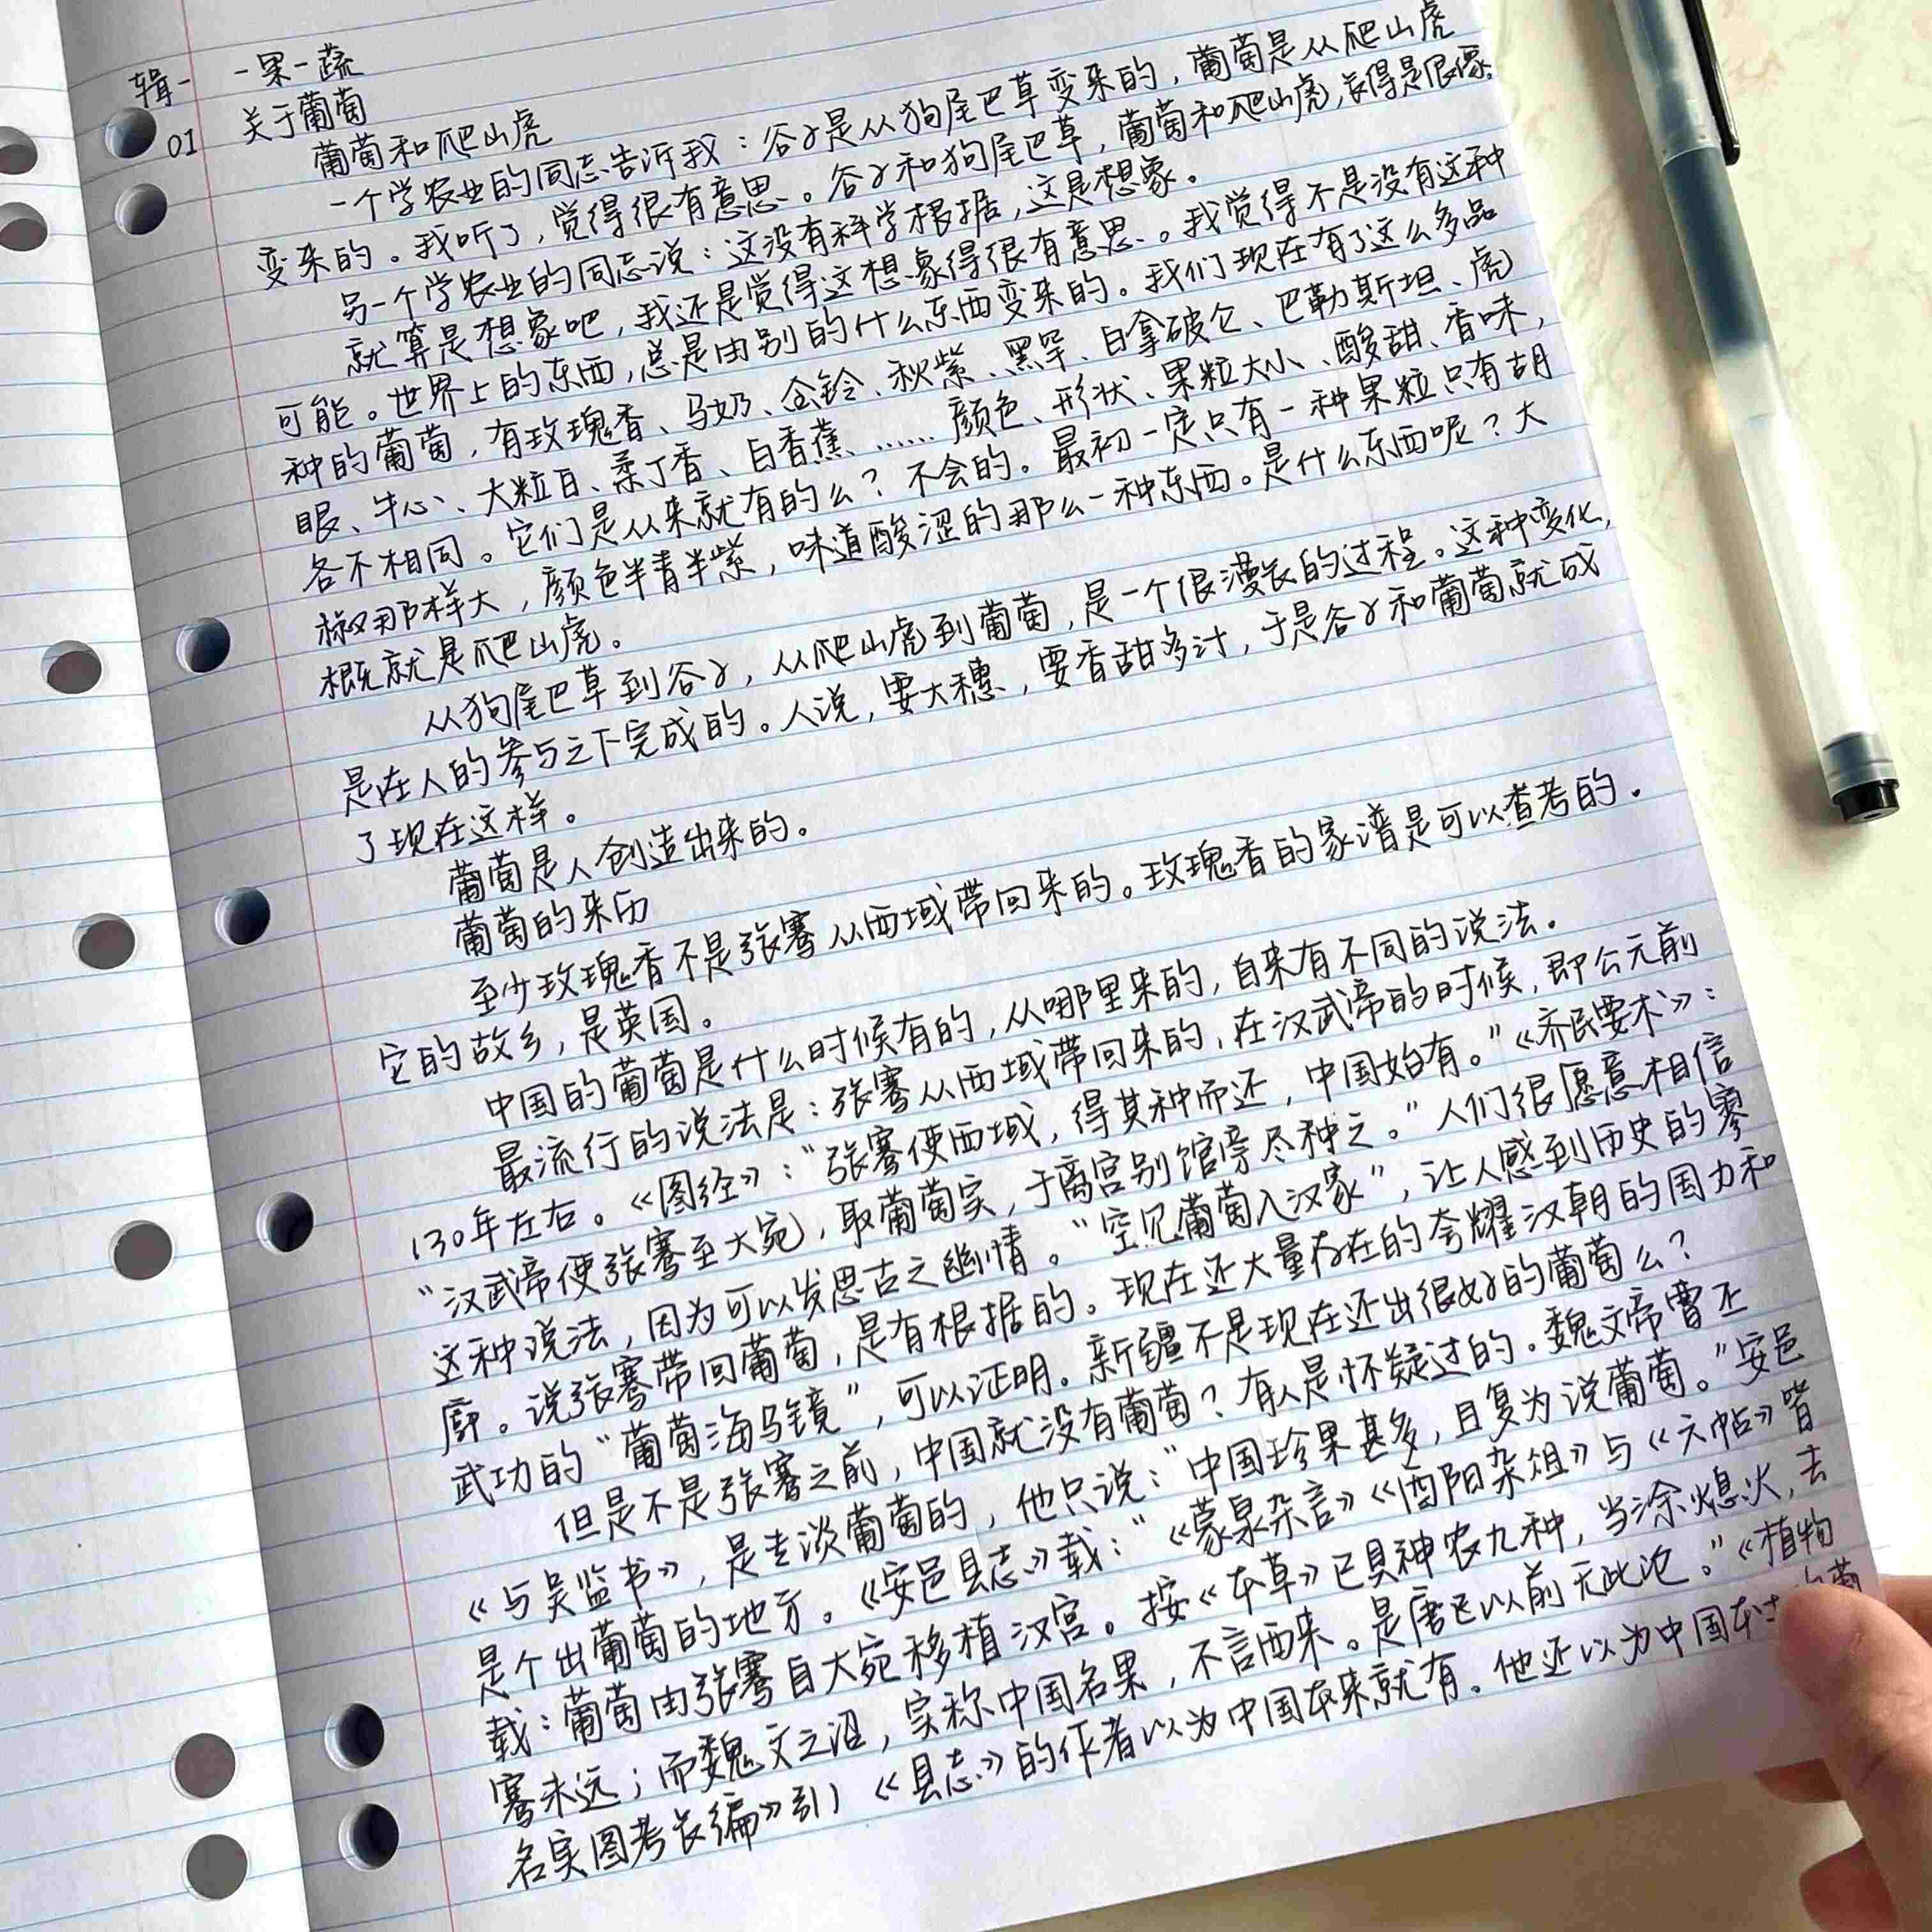 辑一 一果一蔬
01 关于葡萄
葡萄和爬山虎
一个学农业的同志告诉我：谷子是从狗尾巴草变来的，葡萄是从爬山虎
变来的。我听了，觉得很有意思。谷子和狗尾巴草，葡萄和爬山虎，长得是很像。
另一个学农业的同志说：这没有科学根据，这是想象。
就算是想象吧，我还是觉得这想象得很有意思。我觉得不是没有这种
可能。世界上的东西，总是由别的什么东西变来的。我们现在有了这么多品
种的葡萄，有玫瑰香、马奶、金铃、秋紫、黑罕、白拿破仑、巴勒斯坦、虎
眼、牛心、大粒白、柔丁香、白香蕉、……颜色、形状、果粒大小、酸甜、香味，
各不相同。它们是从来就有的么？不会的。最初一定只有一种果粒只有胡
椒那样大，颜色半青半紫，味道酸涩的那么一种东西。是什么东西呢？大
概就是爬山虎。
从狗尾巴草到谷子，从爬山虎到葡萄，是一个很漫长的过程。这种变化，
是在人的参与之下完成的。人说，要大穗，要香甜多汁，于是谷子和葡萄就成
了现在这样。
葡萄是人创造出来的。
葡萄的来历
至少玫瑰香不是张骞从西域带回来的。玫瑰香的家谱是可以查考的。
它的故乡，是英国。
中国的葡萄是什么时候有的，从哪里来的，自来有不同的说法。
最流行的说法是：张骞从西域带回来的，在汉武帝的时候，即公元前
130年左右。《图经》：“张骞使西域，得其种而还，中国始有。”《齐民要术》：
“汉武帝使张骞至大宛，取葡萄实，于离宫别馆旁尽种之。”人们很愿意相信
这种说法，因为可以发思古之幽情。“空见葡萄入汉家”，让人感到历史的寥
廓。说张骞带回葡萄，是有根据的。现在还大量存在的夸耀汉朝的国力和
武功的“葡萄海马镜”，可以证明。新疆不是现在还出很好的葡萄么？
但是不是张骞之前，中国就没有葡萄？有人是怀疑过的。魏文帝曹丕
《与吴监书》，是专谈葡萄的，他只说：“中国珍果甚多，且复为说葡萄。”安邑
是个出葡萄的地方。《安邑县志》载：“《蒙泉杂言》《酉阳杂俎》与《六帖》皆
载：葡萄由张骞自大宛移植汉宫。按《本草》已具神农九种，当涂熄火，去
骞未远；而魏文之诏，实称中国名果，不言西来。是唐以前无此论。”《植物
名实图考长编》引《县志》的作者以为中国本来就有。他还以为中国本土的葡